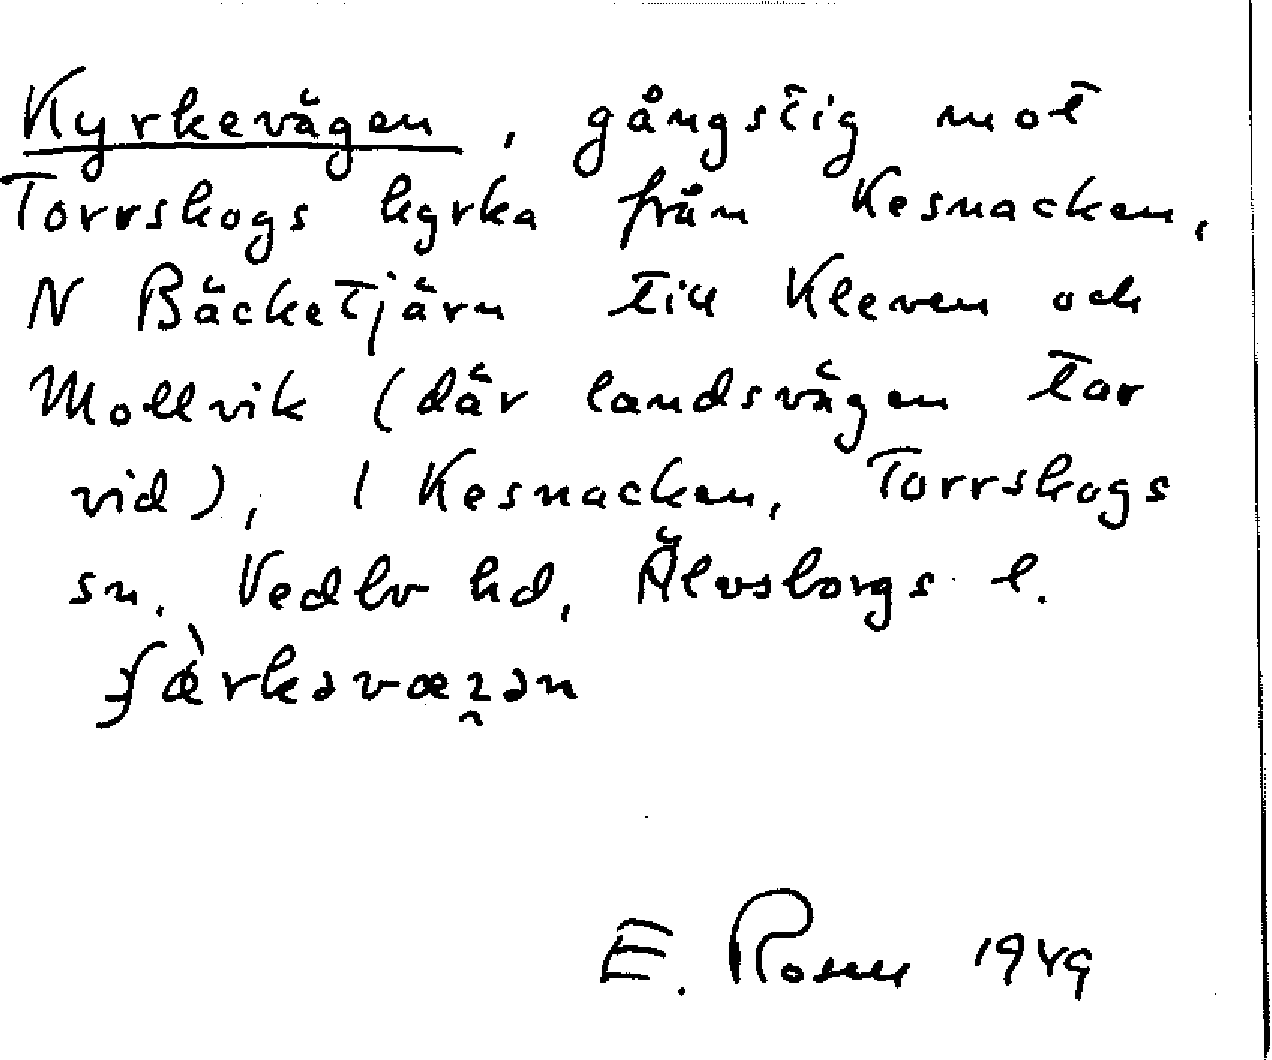 Kyrkevägen, gångstig mot
Torrskogs kyrka från Kesnacken,
N Bäcketjärn till Kleven och
Mollvik (där landsvägen tar
vid), I Kesnacken, Torrskogs
sn. Vedbo hd, Älvsborgs l.
E. Rosen 1949